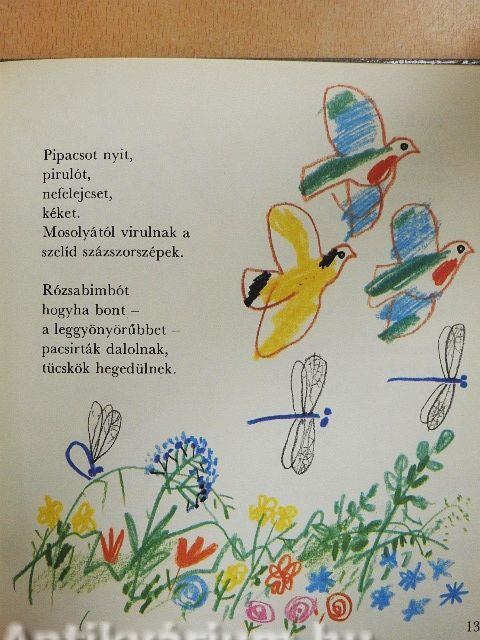 Pipacsot nyit,
pirulót,
nefelejcset,
kéket.
Mosolyától virulnak a
szelíd százszorszépek.
Rózsabimbót
hogyha bont –
a leggyönyörűbbet –
pacsirták dalolnak,
tücskök hegedülnek.
13
Antikvárium.hu